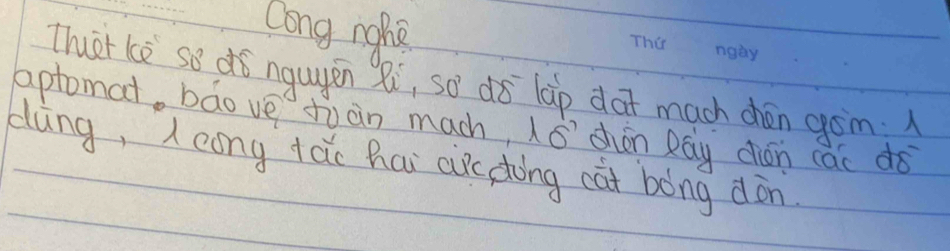 Công nghệ
Thứ ngày
Thiết kế sơ đồ nguyên lí, sơ đồ lắp đặt mạch điện gồm: 1
aptomat bảo vệ toàn mạch, 1 ổ điện lấy điện các đồ
dùng, 1 công tắc hai cực đóng cắt bóng đèn.